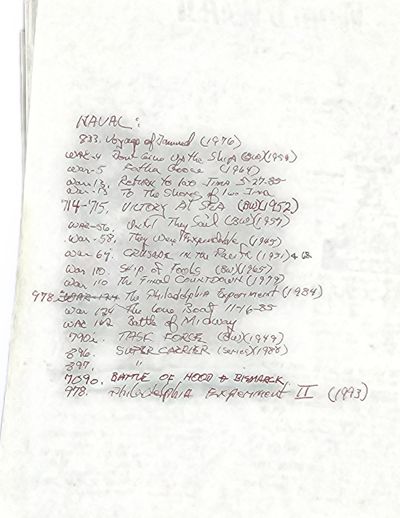 NAVAL:
833. Voyage of Damned (1976)
WAR-4 Don't Give Up the Ship (BW)(1959)
War-5 Father Goose (1964)
War-13. Return to Iwo Jima 5-27-85
War-13 To The Shores of Iwo Jima
714-715, VICTORY AT SEA (BW)(1952)
WAR-56. Until They Sail (BW)(1957)
War-58, They Were Expendable (1945)
War-64. CRUSADE IN The Pacific (1951)
War 110. Ship of Fools (BW)(1965)
War 110 The Final COUNTDOWN (1979)
978. WAR-124 The Philadelphia Experiment (1984)
War 124 The Love Boat 11-16-85
WAR 162 Battle of Midway
790i. TASK FORCE (BW)(1949)
896. SUPER CARRIER (SERIES)(1988)
897. "
7090. BATTLE OF HOOD & BISMARCK.
978. Philadelphia EXPERIMENT II (1993)